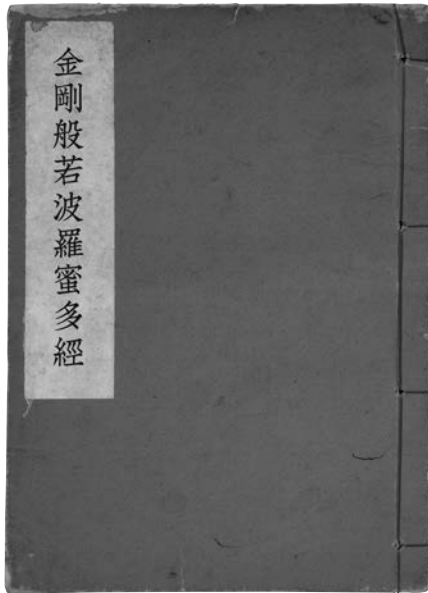 金剛般若波羅蜜多經